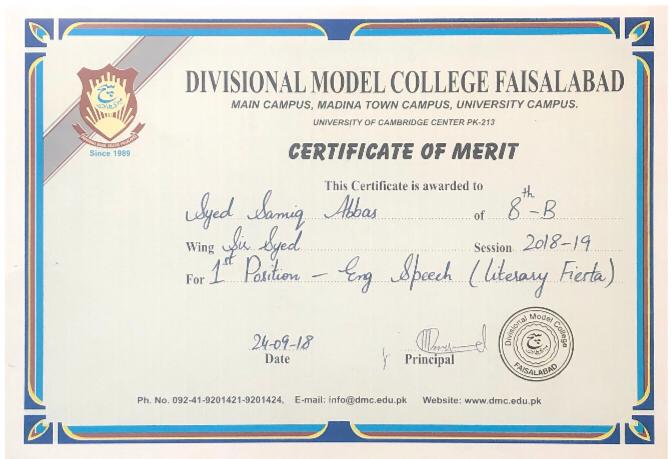 DIVISIONAL MODEL COLLEGE FAISALABAD
MAIN CAMPUS, MADINA TOWN CAMPUS, UNIVERSITY CAMPUS.
UNIVERSITY OF CAMBRIDGE CENTER PK-213
Since 1989
CERTIFICATE OF MERIT
This Certificate is awarded to
Syed Samiq Abbas of 8th-B
Wing Sir Syed Session 2018-19
For 1st Position - Eng Speech (Literary Fiesta)
24-09-18
Date Principal
Divisional Model College
FAISALABAD
Ph. No. 092-41-9201421-9201424, E-mail: info@dmc.edu.pk Website: www.dmc.edu.pk